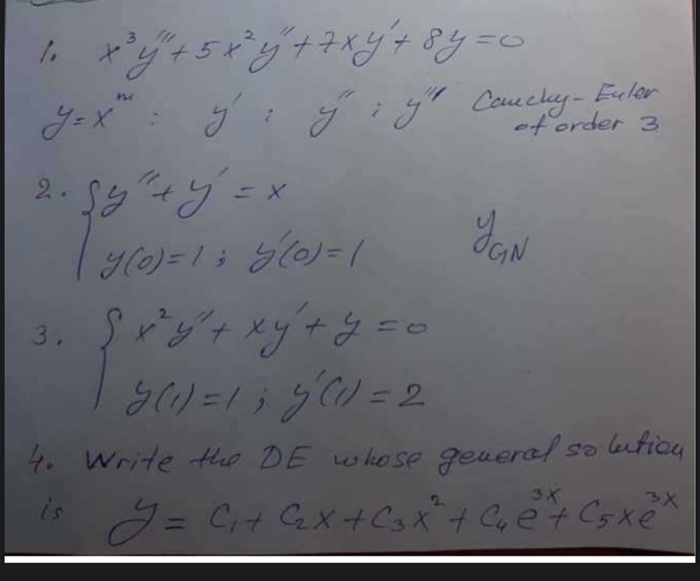 1. x³y''' + 5x²y'' + 7xy' + 8y = 0
y = x^m : y' ; y'' ; y''' Cauchy-Euler
of order 3
2. { y'' + y' = x
y(0) = 1 ; y'(0) = 1 y_GN
3. { x²y'' + xy' + y = 0
y(1) = 1 ; y'(1) = 2
4. Write the DE whose general solution
is y = C₁ + C₂x + C₃x² + C₄e^3x + C₅xe^3x